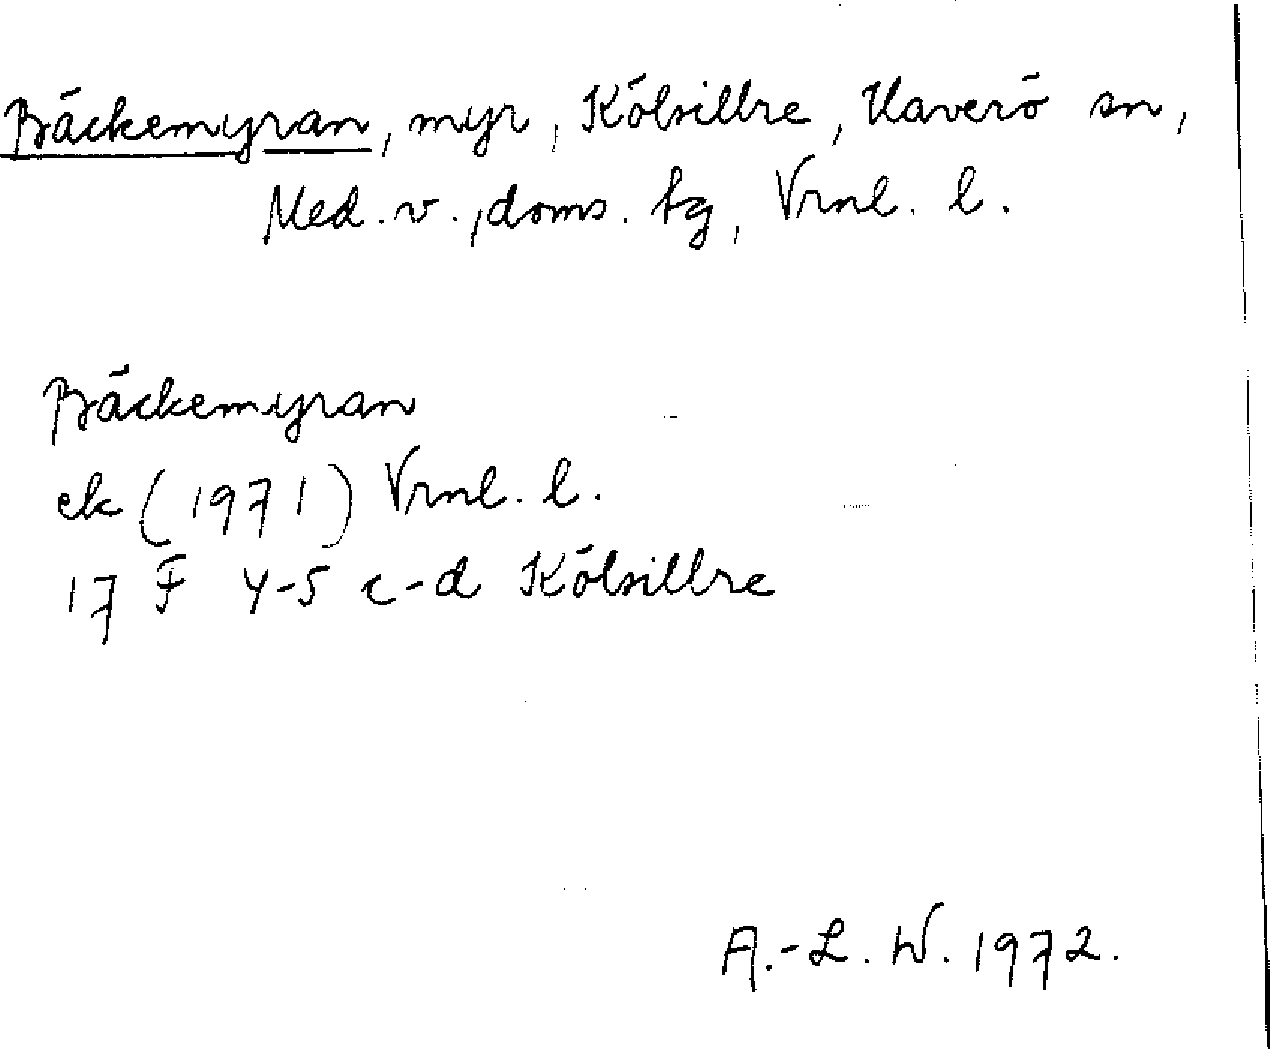 Bäckemyran, myr, Kölsillre, Haverö sn,
Med. v., doms. tg, Vrnl. l.
Bäckemyran
ek (1971) Vrnl. l.
17 F 4-5 c-d Kölsillre
A.-L. W. 1972.